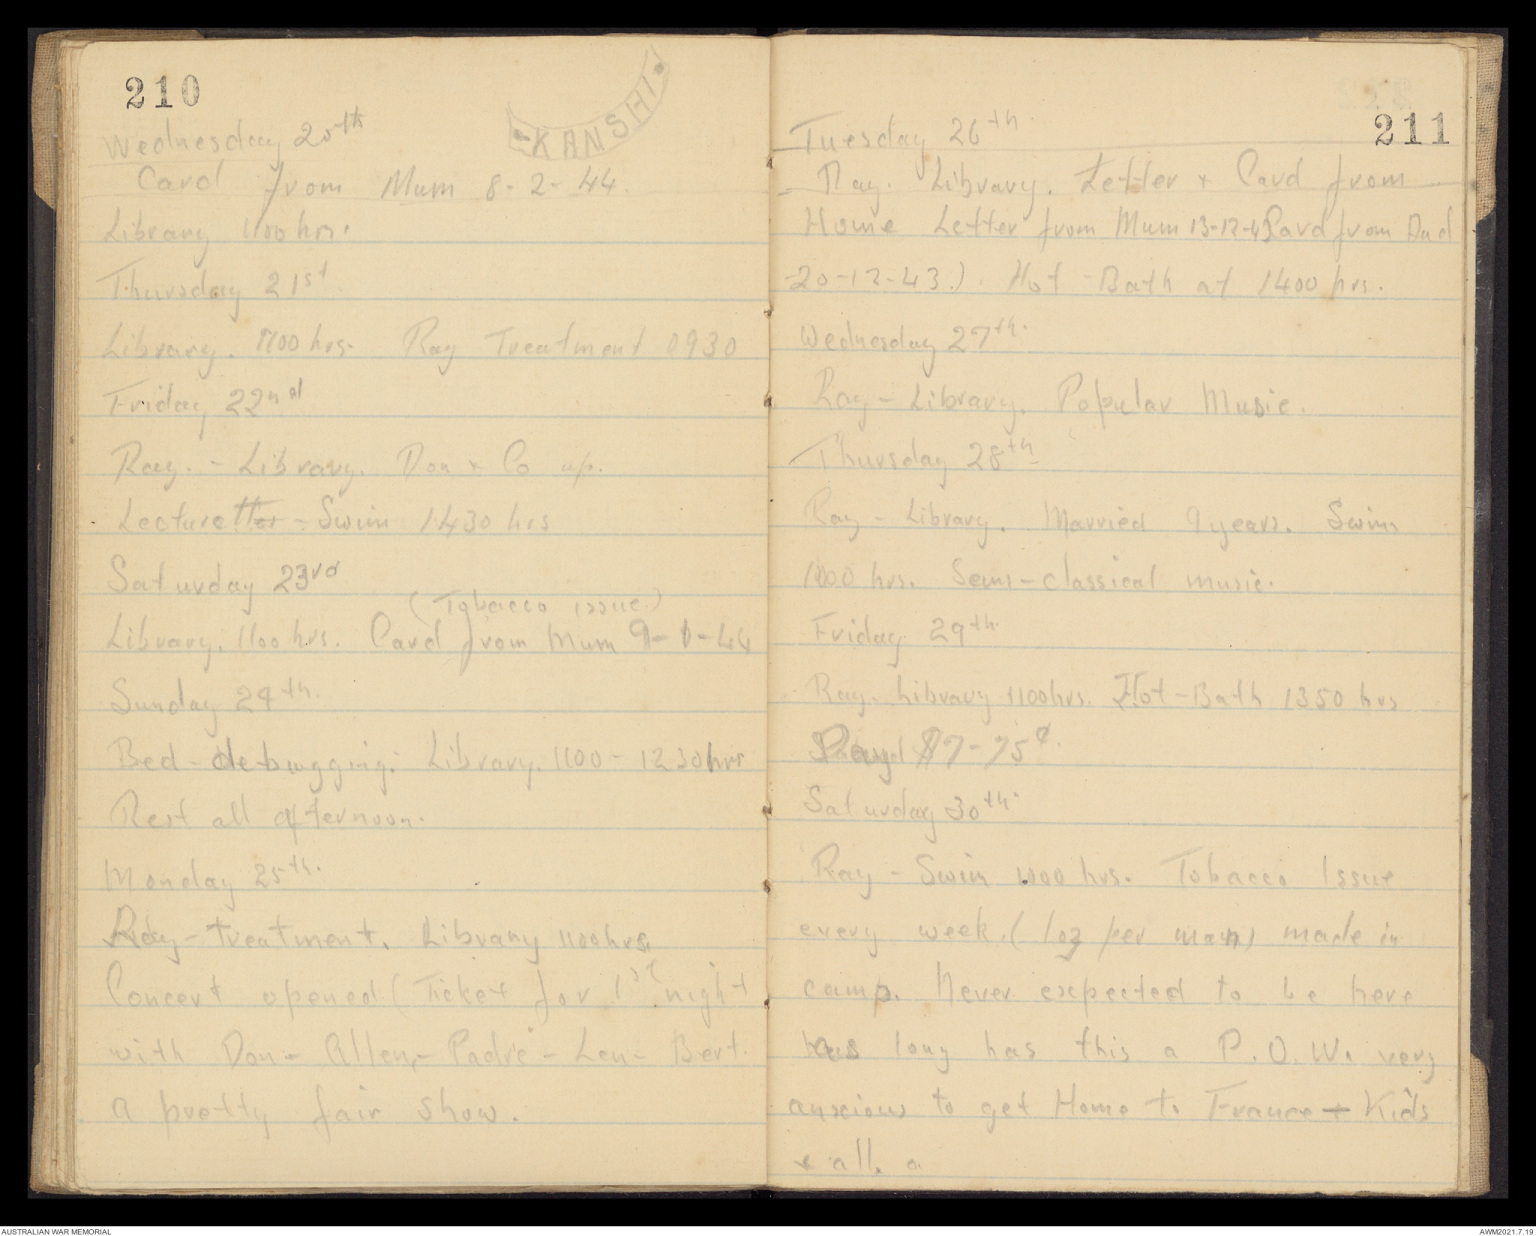 210
·KANSHI·
Wednesday 20th
Card from Mum 8-2-44.
Library 1100 hrs.
Thursday 21st.
Library. 1100 hrs. Ray Treatment 0930
Friday 22nd
Ray. - Library. Don + Co up.
Lecturettes - Swim 1430 hrs
Saturday 23rd
(Tobacco issue.)
Library. 1100 hrs. Card from Mum 9-1-44
Sunday 24th.
Bed-debugging. Library. 1100-1230hrs
Rest all afternoon.
Monday 25th.
Ray-treatment. Library 1100hrs.
Concert opened (Ticket for 1st night
with Don - Allen, - Padre - Len - Bert.
a pretty fair show.
211
Tuesday 26th
Ray. Library. Letter + Card from
Home Letter from Mum 13-12-43 Card from Dad
20-12-43.). Hot-Bath at 1400 hrs.
Wednesday 27th.
Ray - Library. Popular Music.
Thursday 28th
Ray - Library. Married 9 years. Swim
1000 hrs. Semi-classical music.
Friday 29th.
Ray. Library 1100hrs. Hot-Bath 1350 hrs
Payd $7-75¢.
Saturday 30th.
Ray - Swim 1000 hrs. Tobacco Issue
every week. (1oz per man) made in
camp. Never expected to be here
as long has this a P.O.W. very
anxious to get Home to France + Kids
+ all. a
AUSTRALIAN WAR MEMORIAL
AWM2021.7.19